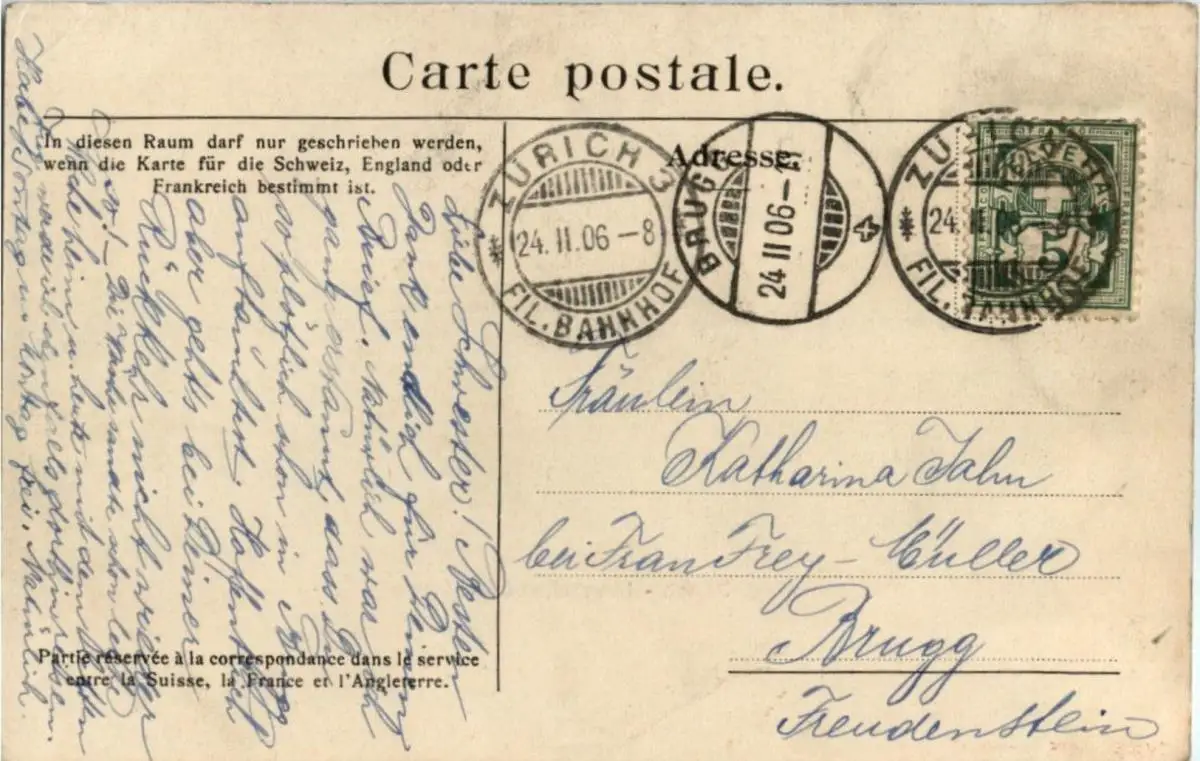 Carte postale.
In diesen Raum darf nur geschrieben werden,
wenn die Karte für die Schweiz, England oder
Frankreich bestimmt ist.
Adresse.
ZÜRICH 3
24.II.06–8
FIL. BAHNHOF
BRUGG
24 II 06
ZÜRICH
24.II.
FIL. BAHNHOF
5
Fräulein
Katharina Jahn
bei Frau Frey-Müller
Brugg
Freudenstein
Liebe Schwester! Besten
Dank endlich für Deinen
Brief. Natürlich war ich
ganz erstaunt, dass Du
so plötzlich schon in Brugg
auftauchst. Hoffentlich
aber gehts bei Deiner
Rückkehr nicht wieder
so! – Die
heute mit dem
Habe Sonntag u. Montag frei. Natürlich.
Partie réservée à la correspondance dans le service
entre la Suisse, la France et l'Angleterre.